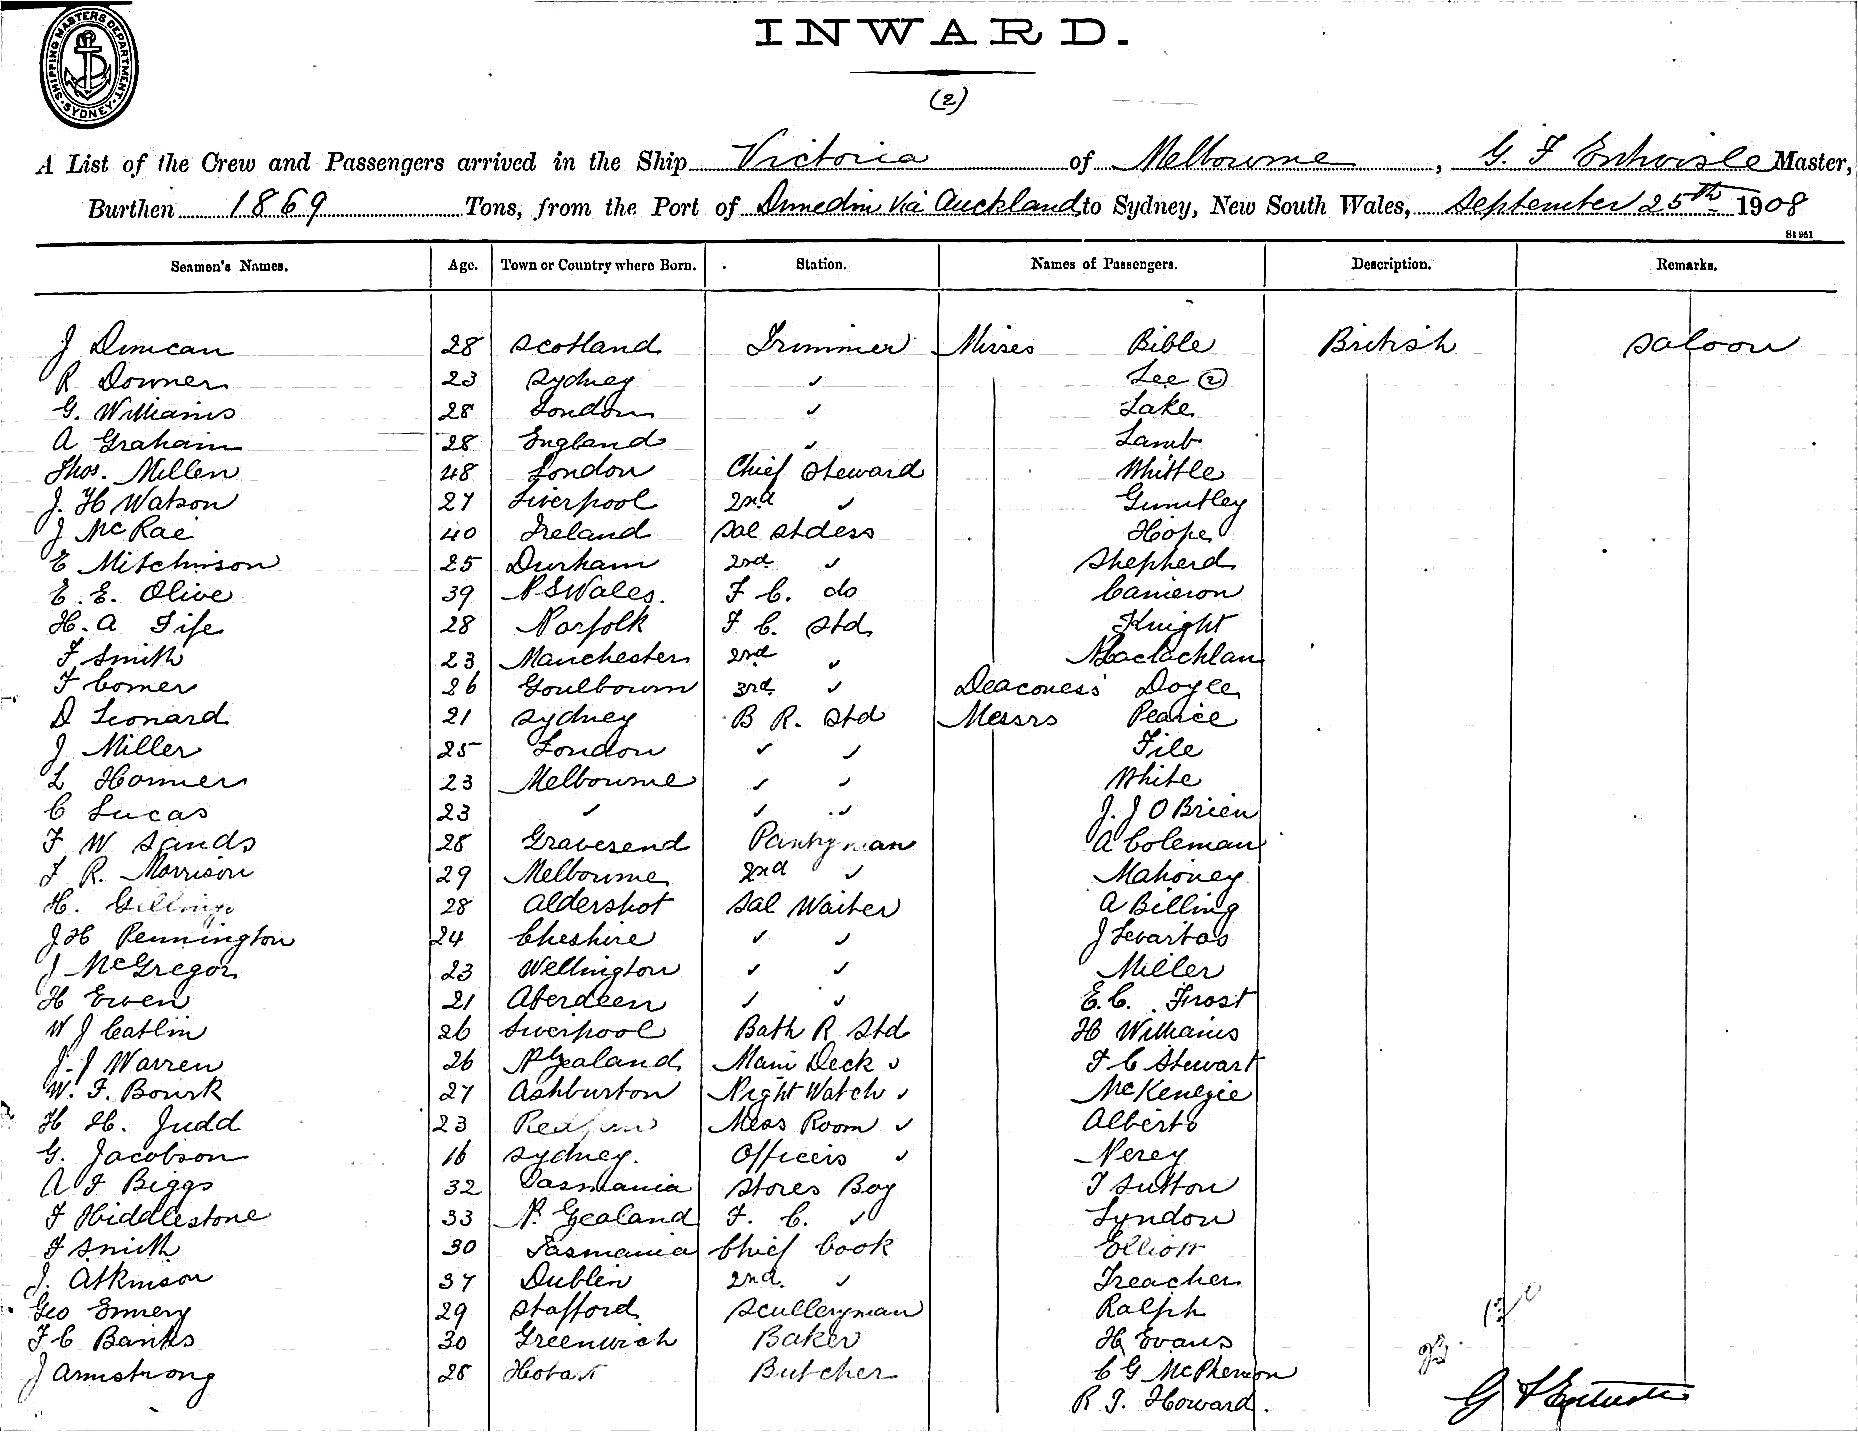 SHIPPING MASTERS DEPARTMENT. SYDNEY
INWARD.
(2)
A List of the Crew and Passengers arrived in the Ship Victoria of Melbourne, G. F Entwisle Master,
Burthen 1869 Tons, from the Port of Dunedin via Auckland to Sydney, New South Wales, September 25th 1908
Seamen's Names. Age. Town or Country where Born. Station. Names of Passengers. Description. Remarks.
J Duncan 28 Scotland Trimmer Misses Bible British Saloon
R Downer 23 Sydney ✓ Lee (2)
G. Williams 28 London ✓ Lake
A Graham 28 England ✓ Lamb
Thos. Millen 48 London Chief Steward Whittle
J. H Watson 27 Liverpool 2nd ✓
J McRae 40 Ireland Sal Stdess Hope
E Mitchinson 25 Durham 2nd ✓ Shepherd
E. E. Olive 39 N S Wales. F C. do Cameron
H. A Fife 28 Norfolk F C. Std Knight
F Smith 23 Manchester 2nd ✓ Maclachlan
F Comer 26 Goulbourn 3rd ✓ Deaconess Doyle
D Leonard 21 Sydney B R. Std Messrs Pearce
J Miller 25 London ✓ ✓ File
L Honner 23 Melbourne ✓ ✓ White
C Lucas 23 ✓ ✓ ✓ J. J O Brien
F W Sands 28 Gravesend Pantryman A Coleman
F R. Morrison 29 Melbourne 2nd ✓ Mahoney
H. 28 Aldershot Sal Waiter A Billing
J H Pennington 24 Cheshire ✓ ✓ J Levartos
J McGregor 23 Wellington ✓ ✓ Miller
H Ewen 21 Aberdeen ✓ ✓ E. C. Frost
W J Catlin 26 Liverpool Bath R Std H Williams
J. J Warren 26 N Zealand Main Deck ✓ F C Stewart
W. F. Bourk 27 Ashburton Night Watch ✓ McKenzie
H H. Judd 23 Mess Room ✓ Alberts
G. Jacobson 16 Sydney. Officers ✓ Nerey
A F Biggs 32 Tasmania Stores Boy T Sutton
F Hiddlestone 33 N. Zealand F. C. ✓ Lyndon
F Smith 30 Tasmania Chief Cook Elliott
J. Atkinson 37 Dublin 2nd. ✓ Treacher
Geo Emmery 29 Stafford Sculleryman Ralph
F C Banks 30 Greenwich Baker H Evans
J Armstrong 28 Hobart Butcher C G McPherson
R J. Howard.
G F Entwisle